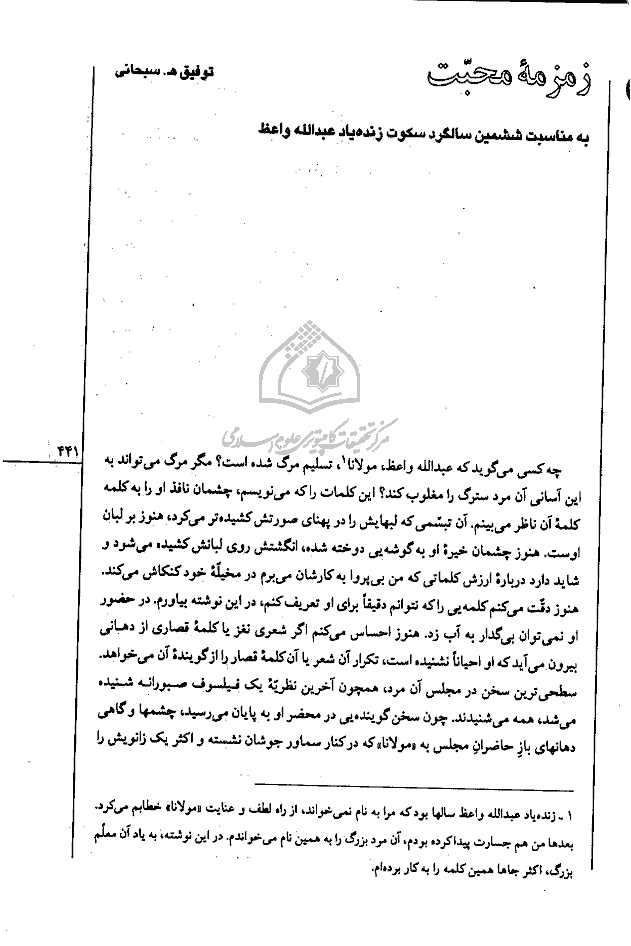 زمزمهٔ محبّت
توفیق هـ. سبحانی
به مناسبت ششمین سالگرد سکوت زنده‌یاد عبدالله واعظ
مرکز تحقیقات کامپیوتری علوم اسلامی
۴۴۱
چه کسی می‌گوید که عبدالله واعظ، مولانا۱، تسلیم مرگ شده است؟ مگر مرگ می‌تواند به
این آسانی آن مرد سترگ را مغلوب کند؟ این کلمات را که می‌نویسم، چشمان نافذ او را به کلمه
کلمهٔ آن ناظر می‌بینم. آن تبسّمی که لبهایش را در پهنای صورتش کشیده‌تر می‌کرد، هنوز بر لبان
اوست. هنوز چشمان خیرهٔ او به گوشه‌یی دوخته شده، انگشتش روی لبانش کشیده می‌شود و
شاید دارد دربارهٔ ارزش کلماتی که من بی‌پروا به کارشان می‌برم در مخیّلهٔ خود کنکاش می‌کند.
هنوز دقّت می‌کنم کلمه‌یی را که نتوانم دقیقاً برای او تعریف کنم، در این نوشته بیاورم. در حضور
او نمی‌توان بی‌گدار به آب زد. هنوز احساس می‌کنم اگر شعری نغز یا کلمهٔ قصاری از دهانی
بیرون می‌آید که او احیاناً نشنیده است، تکرار آن شعر یا آن کلمهٔ قصار را از گویندهٔ آن می‌خواهد.
سطحی‌ترین سخن در مجلس آن مرد، همچون آخرین نظریّهٔ یک فیلسوف صبورانه شنیده
می‌شد، همه می‌شنیدند. چون سخن گوینده‌یی در محضر او به پایان می‌رسید، چشمها و گاهی
دهانهای بازِ حاضرانِ مجلس به «مولانا» که در کنار سماور جوشان نشسته و اکثر یک زانویش را
۱ ـ زنده‌یاد عبدالله واعظ سالها بود که مرا به نام نمی‌خواند، از راه لطف و عنایت «مولانا» خطابم می‌کرد.
بعدها من هم جسارت پیدا کرده بودم، آن مرد بزرگ را به همین نام می‌خواندم. در این نوشته، به یاد آن معلّم
بزرگ، اکثر جاها همین کلمه را به کار برده‌ام.